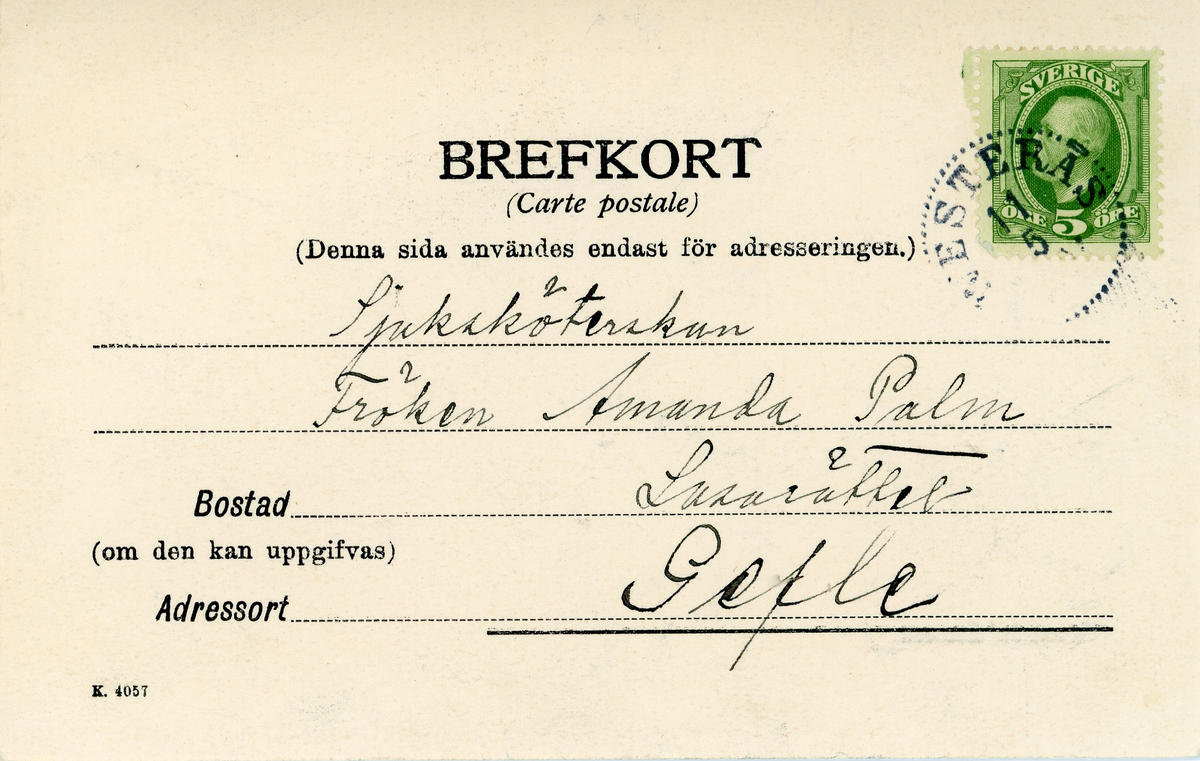 SVERIGE
ÖRE 5 ÖRE
WESTERÅS
11
5
BREFKORT
(Carte postale)
(Denna sida användes endast för adresseringen.)
Sjuksköterskan
Fröken Amanda Palm
Bostad Lasarättet
(om den kan uppgifvas)
Adressort Gefle
K. 4057